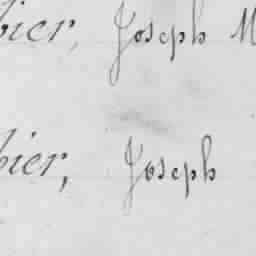 bier, Joseph M
bier, Joseph